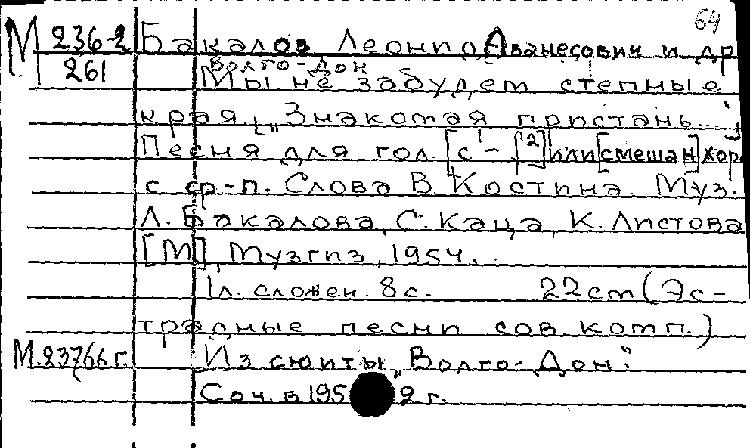 64
М 236-2
261
Бакалов Леонид Аванесович и др
Волго-Дон
Мы не забудем степные
края. [„Знакомая пристань..."]
Песня для гол [c¹ - f²] или [смешан] хор
с ср-п. Слова В. Костина. Муз.
Л. Бакалова, С. Каца, К. Листова
[М], Музгиз, 1954.
1л. сложен. 8с. 22cm (Эс-
традные песни сов. комп.)
М.23766г. Из сюиты „Волго-Дон."
Соч. в 195 2 г.